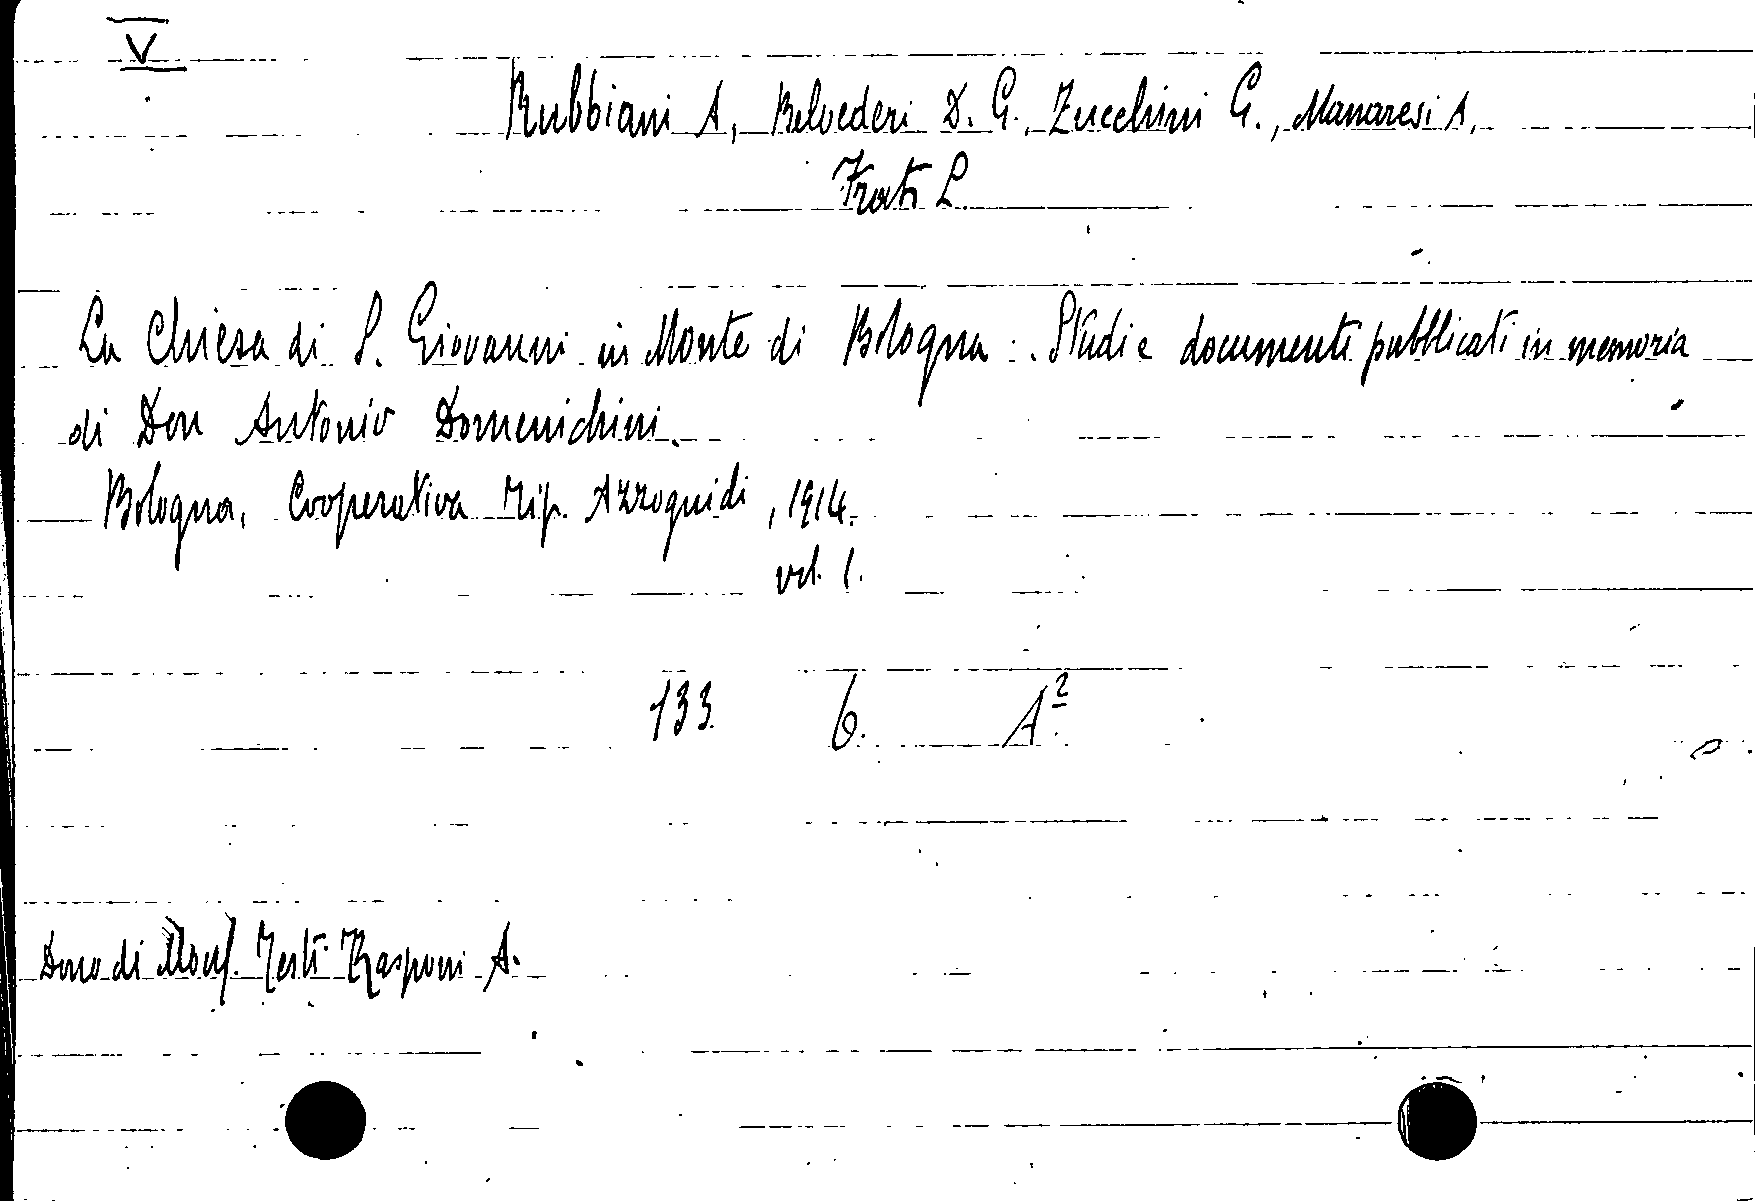 V
Rubbiani A., Belvederi D. G., Zucchini G., Manaresi A.
Frati L.
La Chiesa di S. Giovanni in Monte di Bologna. Studi e documenti pubblicati in memoria
di Don Antonio Domenichini.
Bologna, Cooperativa Tip. Azzoguidi, 1914.
vol. 1.
133 6. A²
Dono di Testi Rasponi A.